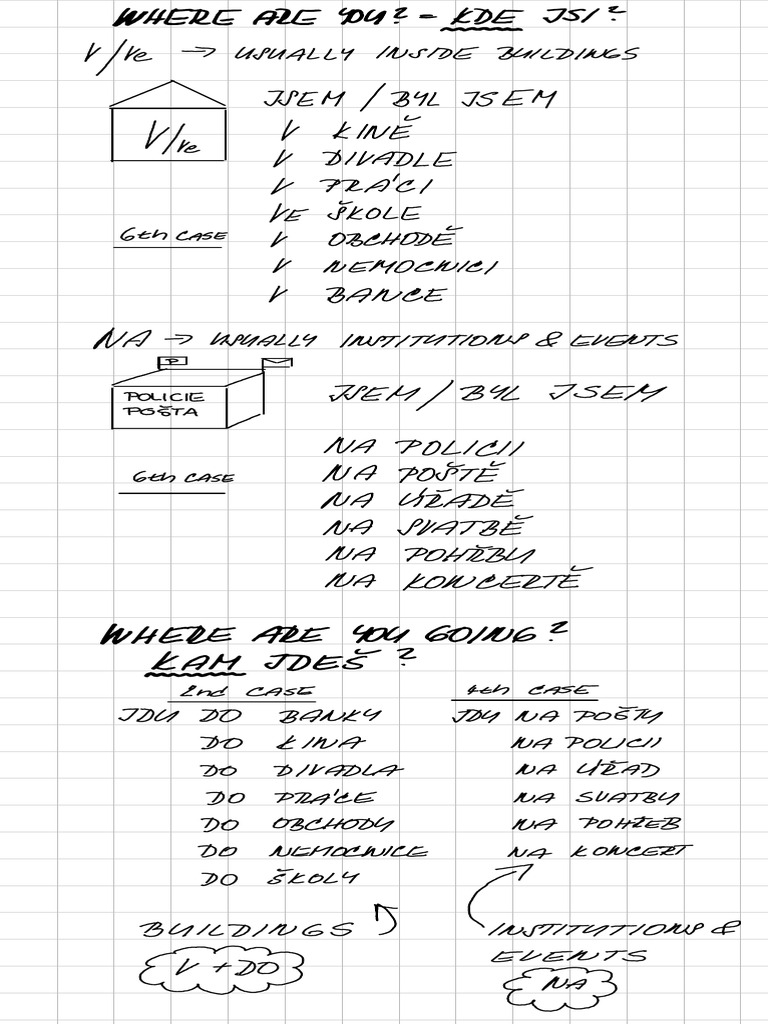 WHERE ARE YOU? = KDE JSI?
V/Ve → USUALLY INSIDE BUILDINGS
V/Ve
6th CASE
JSEM / BYL JSEM
V KINĚ
V DIVADLE
V PRÁCI
VE ŠKOLE
V OBCHODĚ
V NEMOCNICI
V BANCE
NA → USUALLY INSTITUTIONS & EVENTS
P
POLICIE
POŠTA
6th CASE
JSEM / BYL JSEM
NA POLICII
NA POŠTĚ
NA ÚŘADĚ
NA SVATBĚ
NA POHŘBU
NA KONCERTĚ
WHERE ARE YOU GOING?
KAM JDEŠ?
2nd CASE
JDU DO BANKY
DO KINA
DO DIVADLA
DO PRÁCE
DO OBCHODU
DO NEMOCNICE
DO ŠKOLY
BUILDINGS
V + DO
4th CASE
JDU NA POŠTU
NA POLICII
NA ÚŘAD
NA SVATBU
NA POHŘEB
NA KONCERT
INSTITUTIONS &
EVENTS
NA